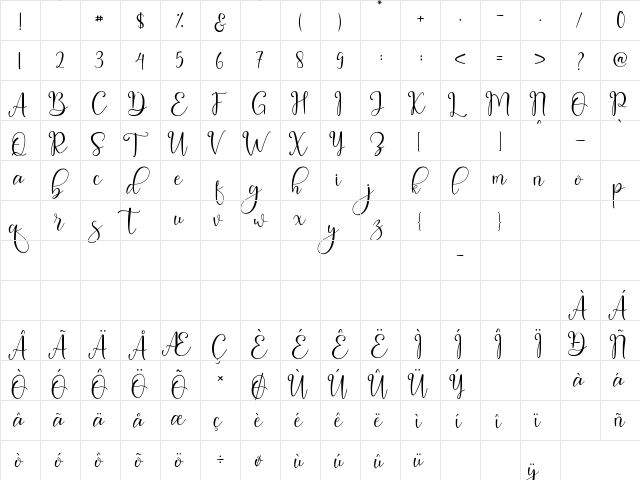 ! # $ % & ( ) * + , - . / 0
1 2 3 4 5 6 7 8 9 : ; < = > ? @
A B C D E F G H I J K L M N O P
Q R S T U V W X Y Z [ ] ^ _ `
a b c d e f g h i j k l m n o p
q r s t u v w x y z { }
-
À Á
Â Ã Ä Å Æ Ç È É Ê Ë Ì Í Î Ï Ð Ñ
Ò Ó Ô Õ Ö × Ø Ù Ú Û Ü Ý à á
â ã ä å æ ç è é ê ë ì í î ï ñ
ò ó ô õ ö ÷ ø ù ú û ü ÿ